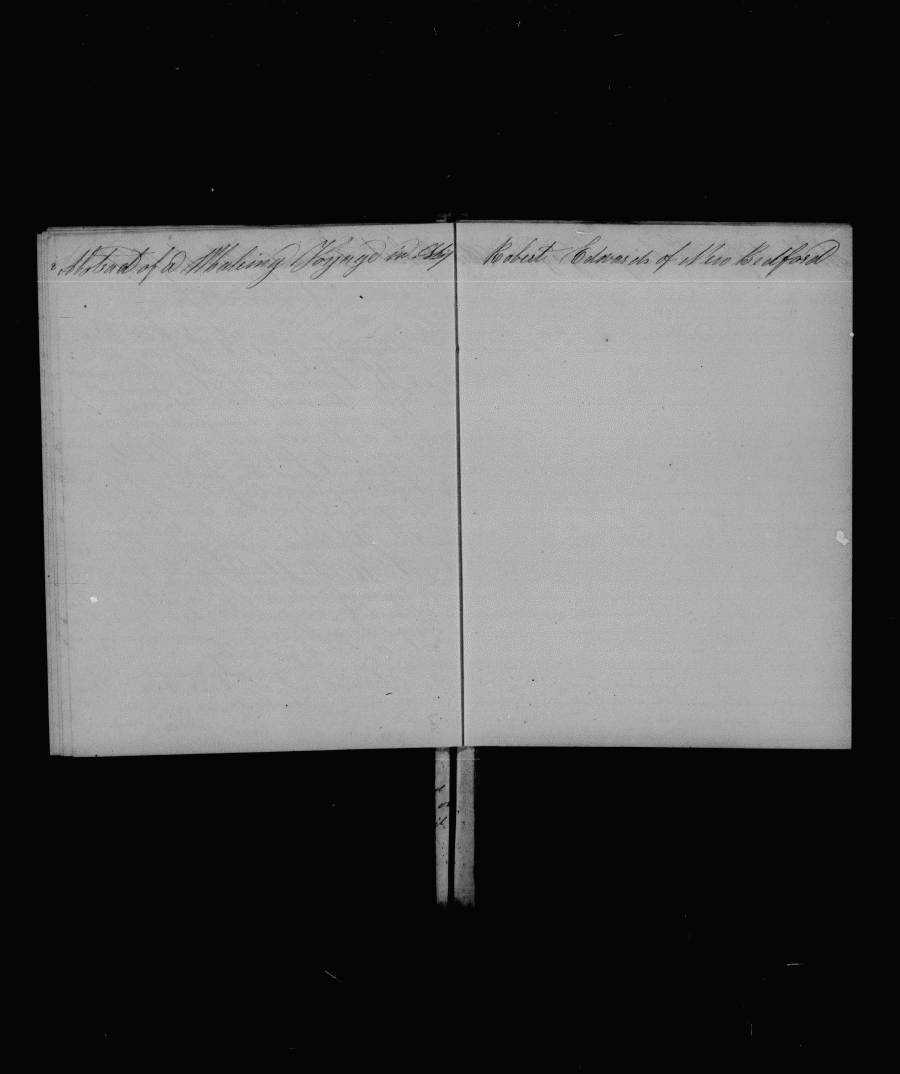 Abstract of a Whaling Voyage in Ship Robert Edwards of New Bedford